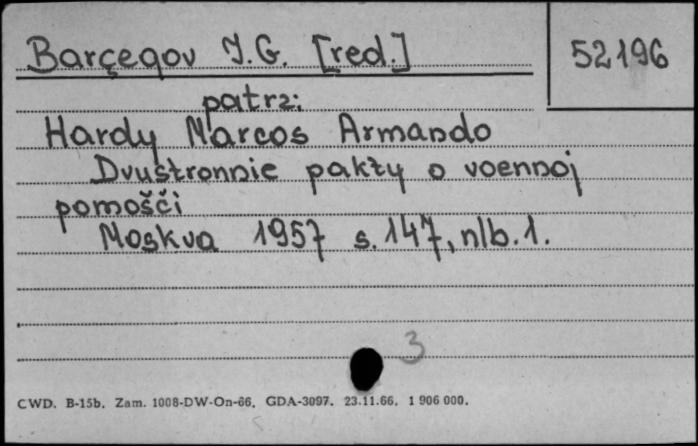 Barçegov J.G. [red.]
52196
patrz:
Hardy Marcos Armando
Dvustronnie pakty o voennoj
pomošči
Moskva 1957 s. 147, nlb. 1.
3
CWD. B-15b. Zam. 1008-DW-On-66. GDA-3097. 23.11.66. 1 906 000.